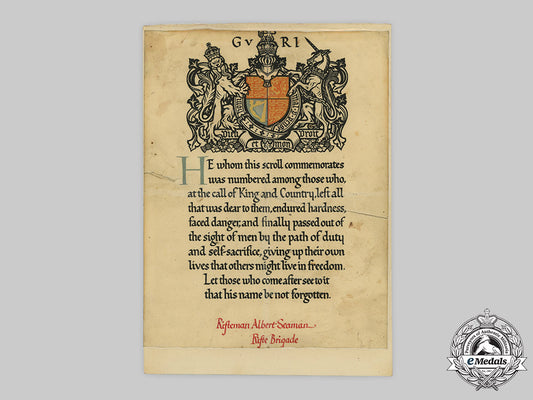 GvRI
Dieu et Mon Droit
HE whom this scroll commemorates
was numbered among those who,
at the call of King and Country, left all
that was dear to them, endured hardness,
faced danger, and finally passed out of
the sight of men by the path of duty
and self-sacrifice, giving up their own
lives that others might live in freedom.
Let those who come after see to it
that his name be not forgotten.
Rifleman Albert Seaman
Rifle Brigade
eMedals